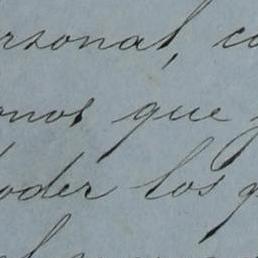 ersonal, co
rnos que
poder los p